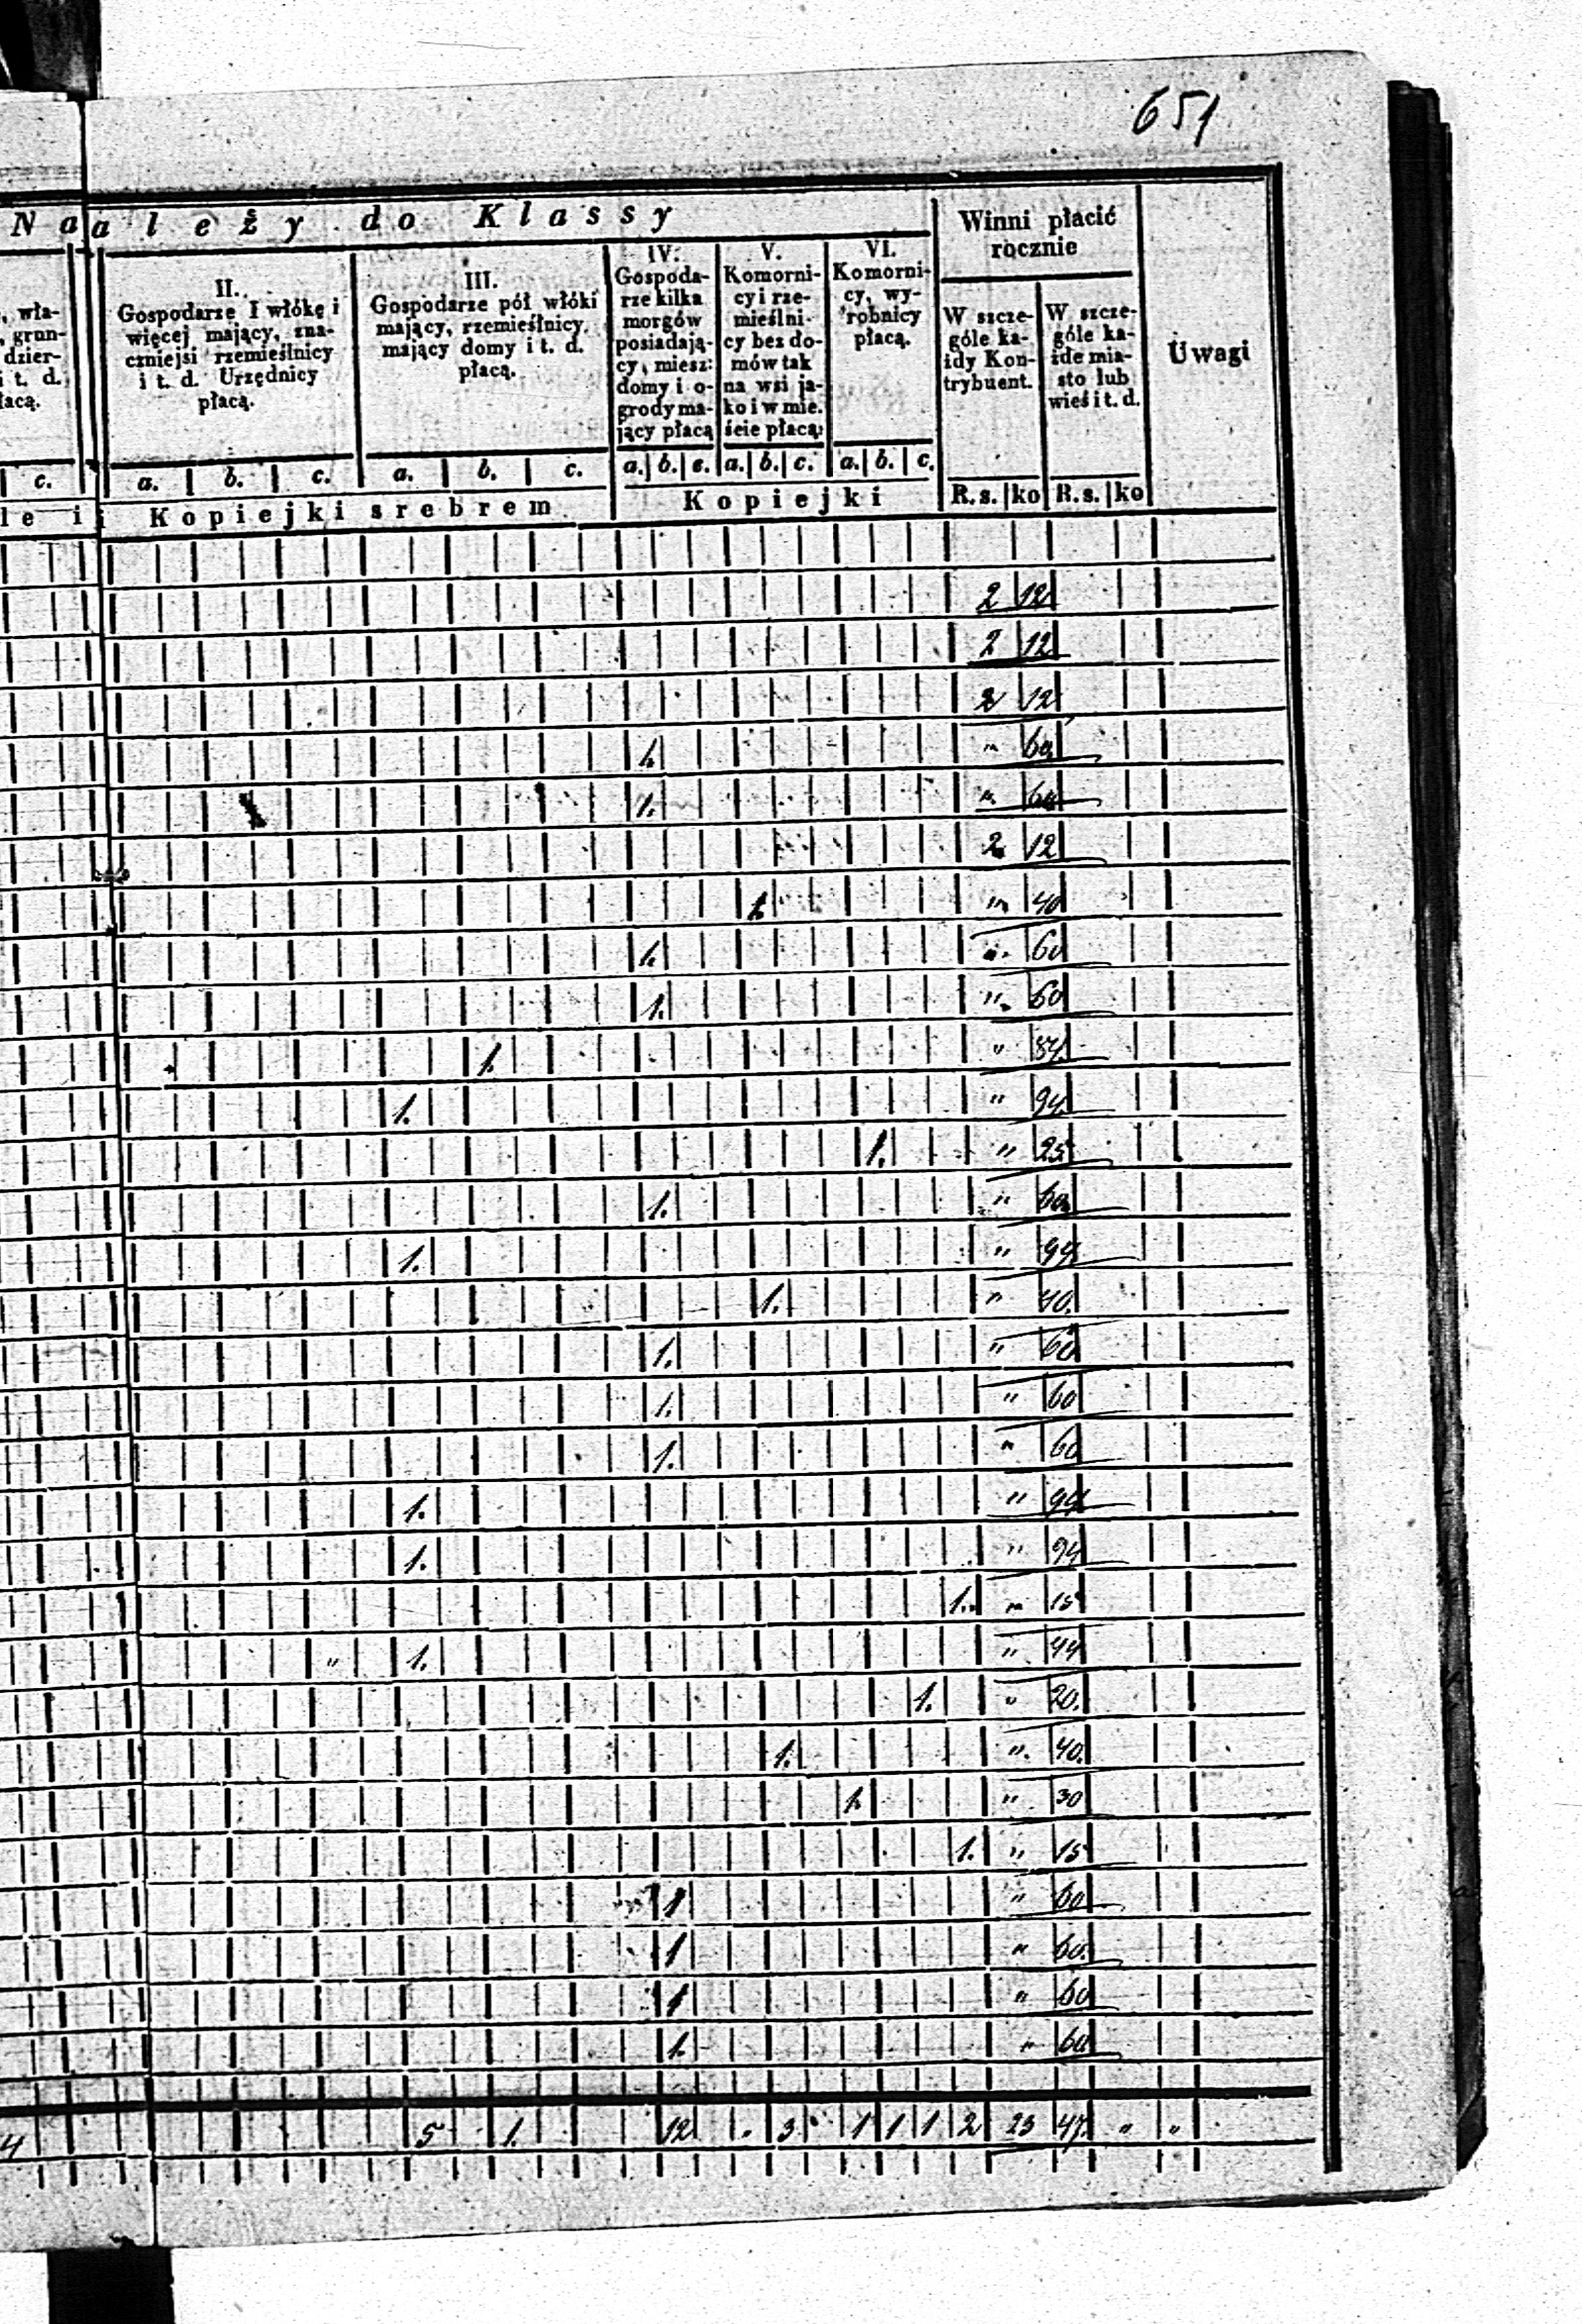 651
Na a l e ż y d o K l a s s y
Winni płacić
rocznie
Uwagi
, wła-
, grun-
dzier-
i t. d.
łacą.
II.
Gospodarze I włókę i
więcej mający, zna-
czniejsi rzemieślnicy
i t. d. Urzędnicy
płacą.
III.
Gospodarze pół włóki
mający, rzemieślnicy,
mający domy i t. d.
płacą.
IV.
Gospoda-
rze kilka
morgów
posiadają-
cy, miesz:
domy i o-
grody ma-
jący płacą
V.
Komorni-
cy i rze-
mieślni-
cy bez do-
mów tak
na wsi ja-
ko i w mie.
ście płacą:
VI.
Komorni-
cy, wy-
robnicy
płacą.
W szcze-
góle ka-
żdy Kon-
trybuent.
W szcze-
góle ka-
żde mia-
sto lub
wieś i t. d.
c. a. b. c. a. b. c. a. b. c. a. b. c. a. b. c.
le i i K o p i e j k i s r e b r e m K o p i e j k i R. s. ko R. s. ko
2 12
2 12
2 12
1. " 60
1. " 60
2 12
1. " 40
1. " 60
1. " 60
1. " 87
1. " 94
1. " 25
1. " 60
1. " 94
1. " 40.
1. " 60
1. " 60
1. " 60
1. " 94
1. " 94
1. " 15
" 1. " 94
1. " 20.
1. " 40.
1. " 30
1. " 15
1 " 60
1 " 60.
1 " 60
1. " 60
4 5 1. 12 . 3 1 1 1 2 23 47. " "